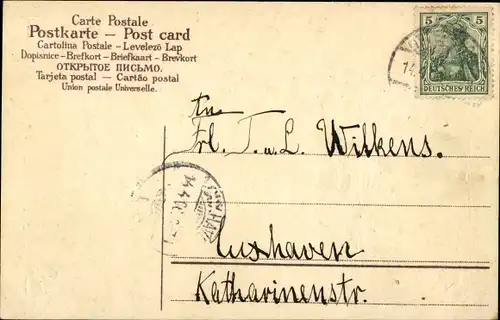 Carte Postale
Postkarte – Post card
Cartolina Postale – Levelező Lap
Dopisnice – Brefkort – Briefkaart – Brevkort
ОТКРЫТОЕ ПИСЬМО.
Tarjeta postal – Cartão postal
Union postale Universelle.
5 5
DEUTSCHES REICH
14.
Frl. T. u. L. Wilkens.
14.4.
Cuxhaven
Katharinenstr.